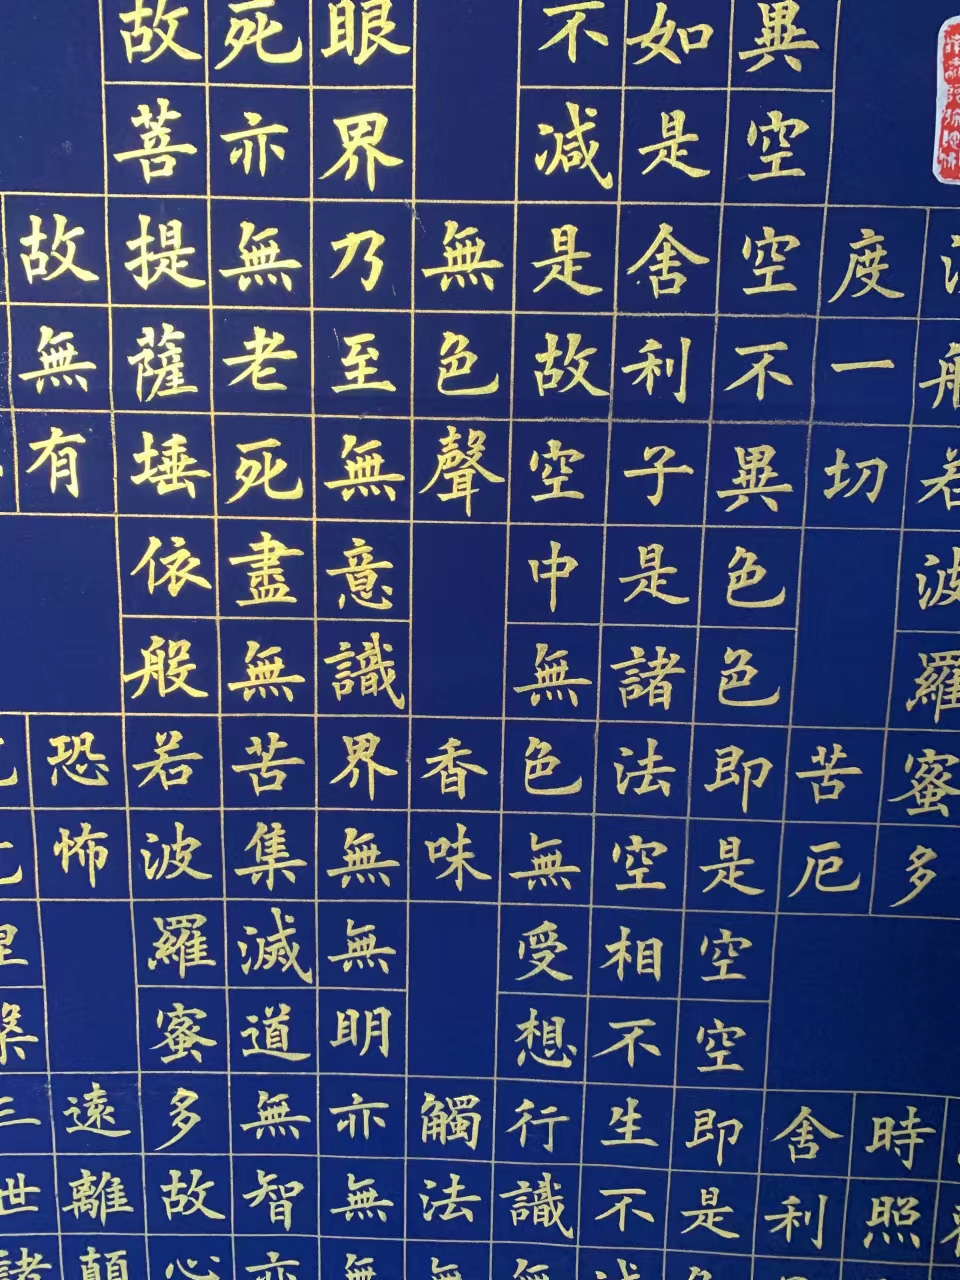 般若波羅蜜多時照
度一切苦厄舍利
異空空不異色色即是空空即是色
如是舍利子是諸法空相不生不
不減是故空中無色無受想行識無
無色聲香味觸法無
眼界乃至無意識界無無明亦無無
死亦無老死盡無苦集滅道無智亦
故菩提薩埵依般若波羅蜜多故心
故無有恐怖遠離顛
涅槃三世諸